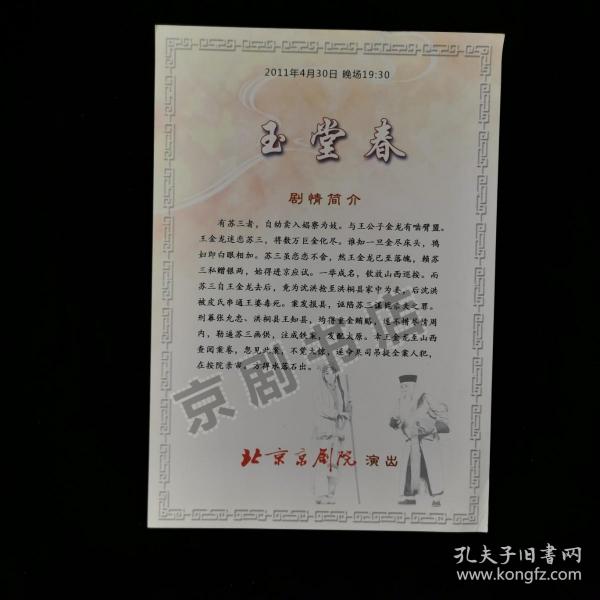 2011年4月30日 晚场19:30
玉堂春
剧情简介
有苏三者，自幼卖入娼寮为妓。与王公子金龙有啮臂盟。
王金龙迷恋苏三，将数万巨金化尽。谁知一旦金尽床头，鸨
妇即白眼相加。苏三虽恋恋不舍，然王金龙已至落魄，赖苏
三私赠银两，始得进京应试。一举成名，钦放山西巡按。而
苏三自王金龙去后，竟为沈洪抢至洪桐县家中为妾，后沈洪
被皮氏串通王婆毒死。案发报县，诬陷苏三谋毙亲夫之罪。
刑幕张允忠、洪桐县王知县，均得重金贿赂，遂不措尽情周
内，勒逼苏三画供，注成铁案，发配太原。幸王金龙至山西
查阅案卷，忽见此案，不觉大惊，遂命臬司吊提全案人犯，
在按院亲审。方得水落石出。
北京京剧院 演出
京剧书店
孔夫子旧书网
www.kongfz.com